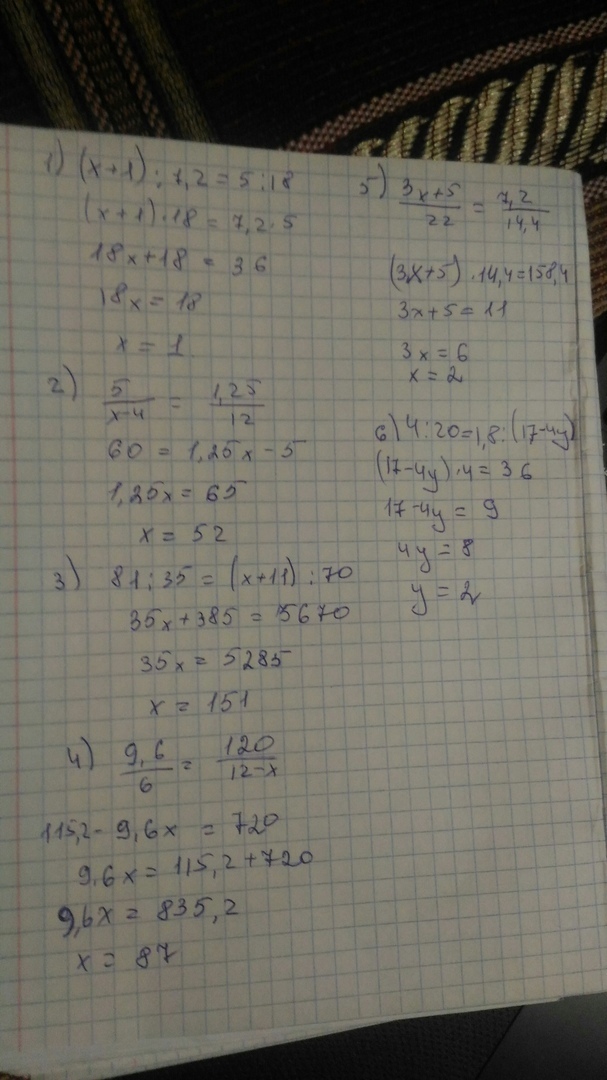 1) (x+1) : 7,2 = 5 : 18
(x+1) · 18 = 7,2 · 5
18x+18 = 36
18x = 18
x = 1
2) 5/(x-4) = 1,25/12
60 = 1,25x - 5
1,25x = 65
x = 52
3) 81 : 35 = (x+11) : 70
35x + 385 = 5670
35x = 5285
x = 151
4) 9,6/6 = 120/(12-x)
115,2 - 9,6x = 720
9,6x = 115,2 + 720
9,6x = 835,2
x = 87
5) (3x+5)/22 = 7,2/14,4
(3x+5) · 14,4 = 158,4
3x+5 = 11
3x = 6
x = 2
6) 4 : 20 = 1,8 : (17-4y)
(17-4y) · 4 = 36
17-4y = 9
4y = 8
y = 2